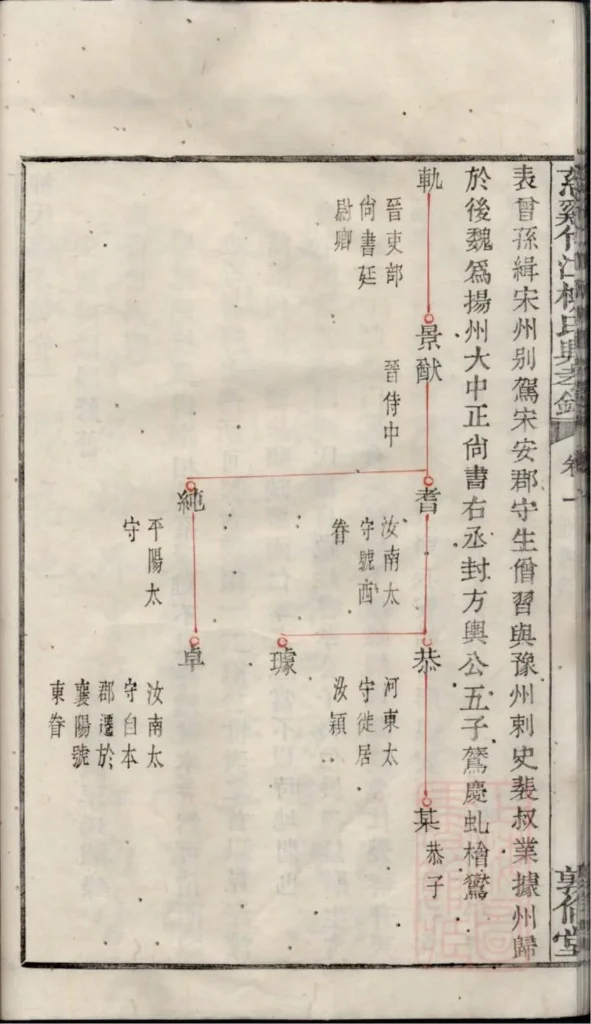 慈谿竹江柳氏
卷一
敦倫堂
表曾孫緝宋州别駕宋安郡守生僧習與豫州刺史裴叔業據州歸
於後魏爲揚州大中正尙書右丞封方輿公五子鷟慶虯檜鸑
軌
晉吏部
尙書廷
尉卿
景猷
晉侍中
耆
汝南太
守號西
眷
純
平陽太
守
恭
河東太
守徙居
汝潁
璩
卓
汝南太
守自本
郡遷於
襄陽號
東眷
某
恭子